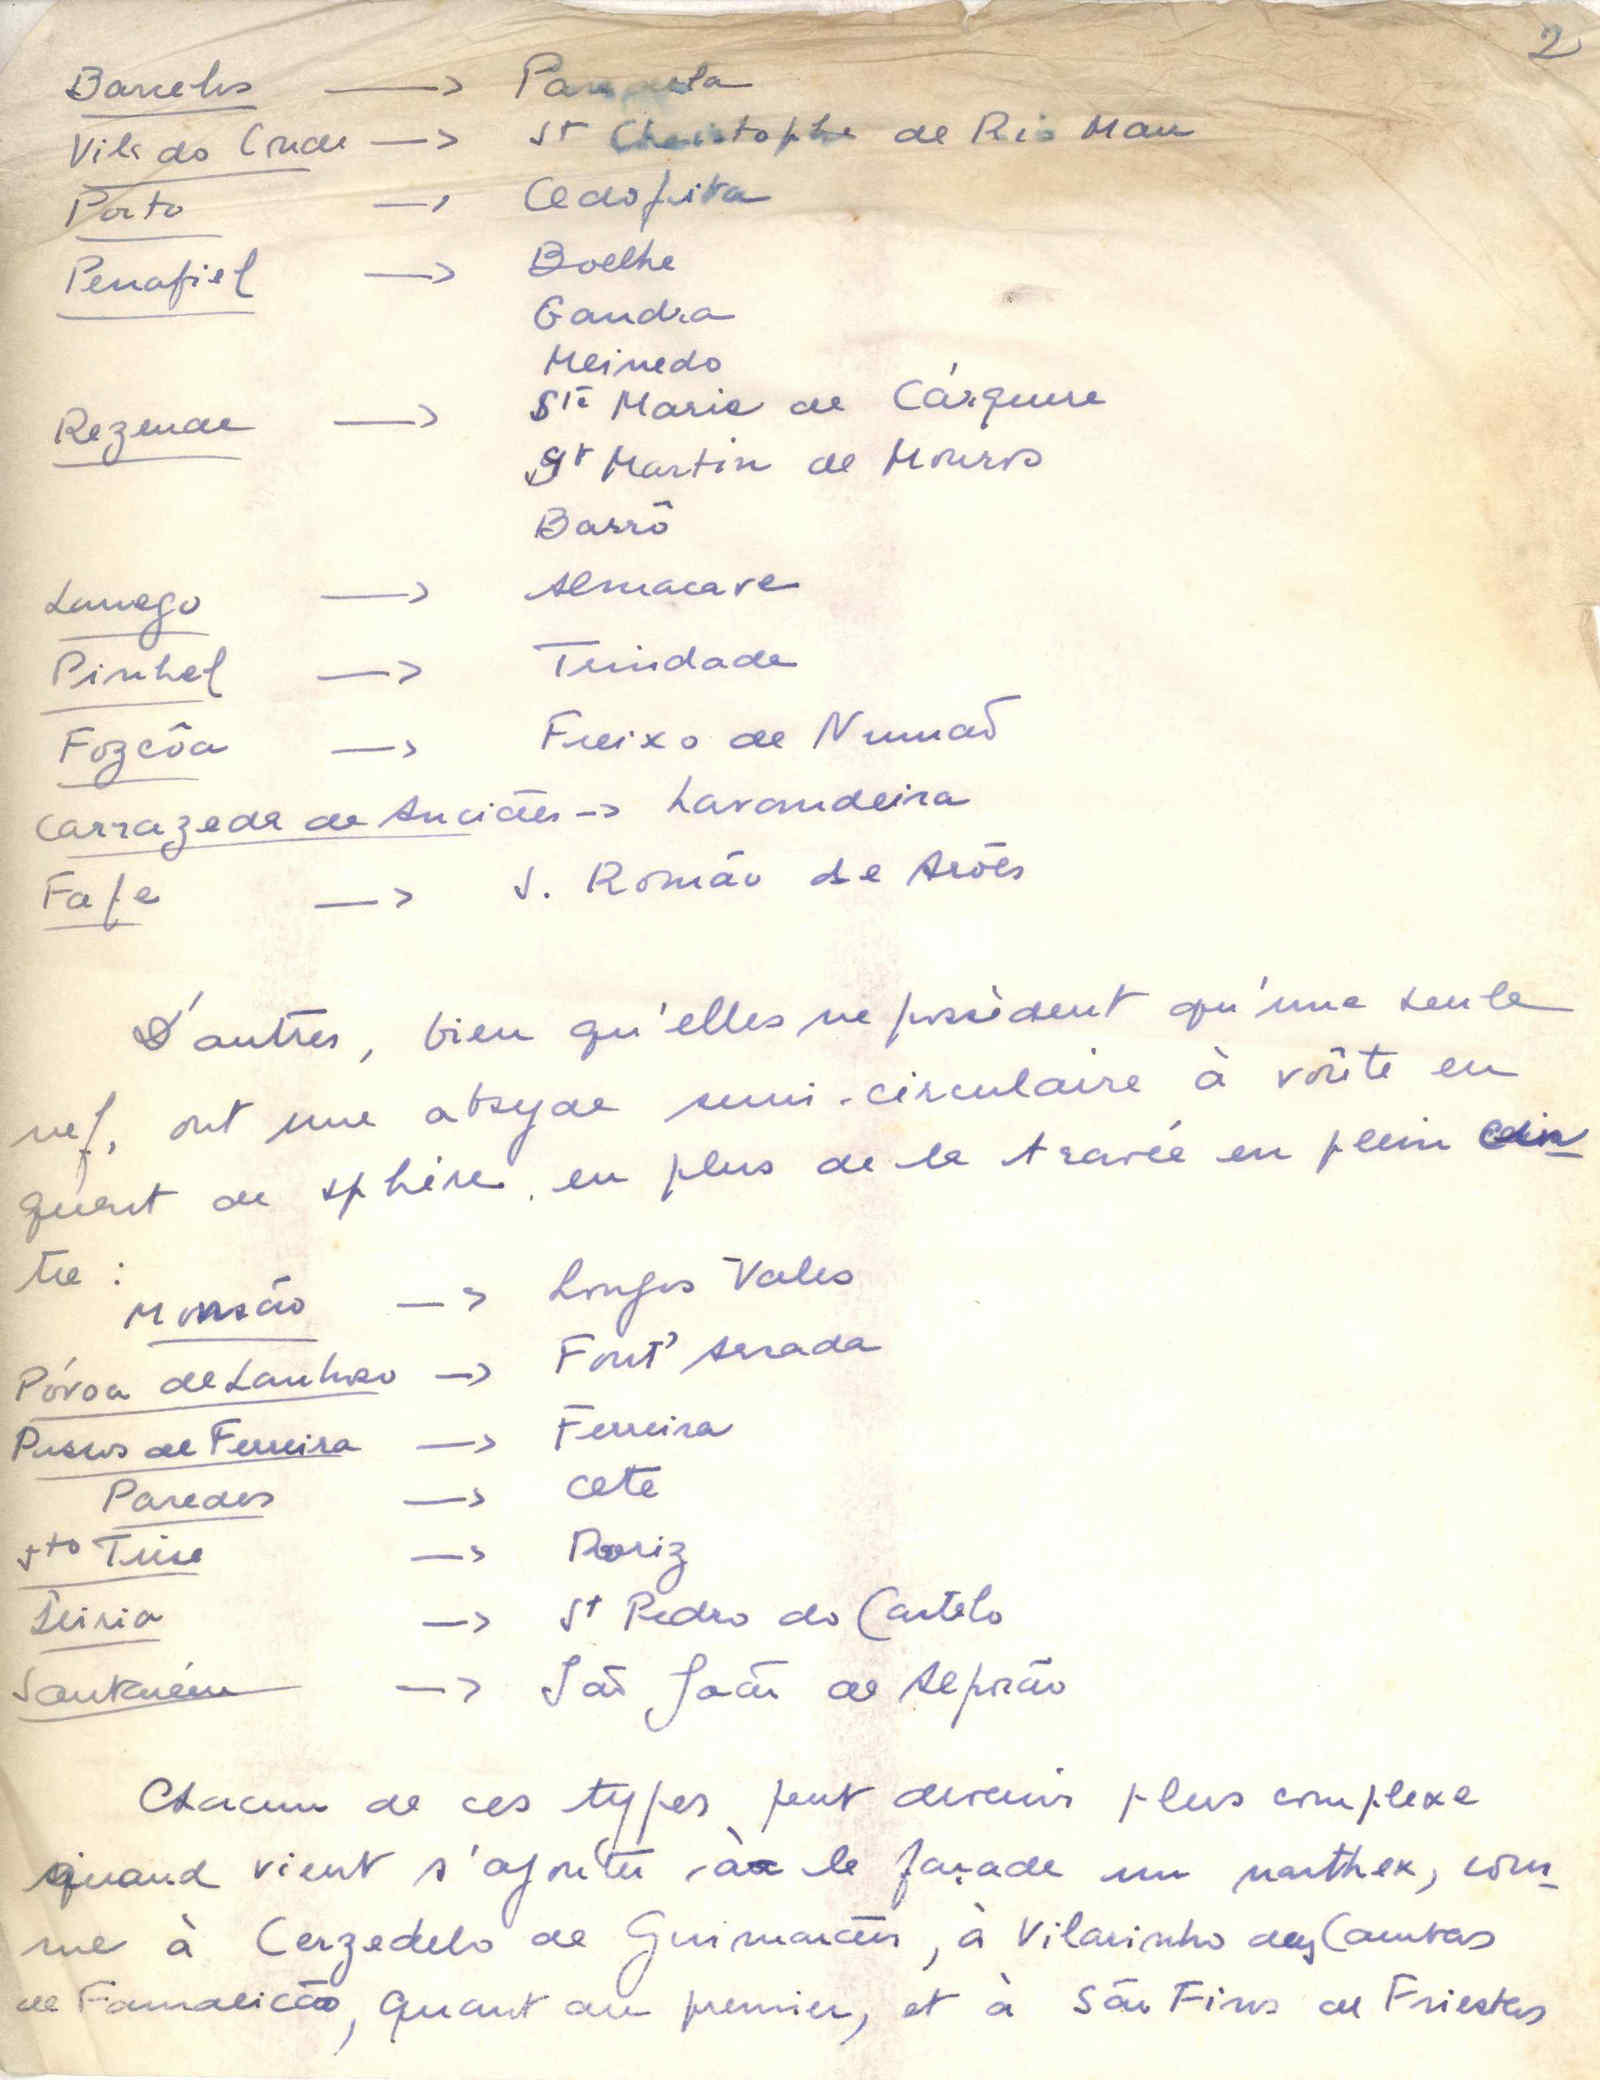 2
Barcelos —> Panque
Vila do Conde —> St Christophe de Rio Mau
Porto —> Cedofeita
Penafiel —> Boelhe
Gandra
Meinedo
Rezende —> Ste Marie de Cárquere
St Martin de Mouros
Barrô
Lamego —> Almacave
Pinhel —> Trindade
Fozcôa —> Freixo de Numão
Carrazeda de Anciães —> Lavandeira
Fafe —> S. Romão de Arões
D'autres, bien qu'elles ne possèdent qu'une seule
nef, ont une absyde semi-circulaire à voûte en
quart de sphère, en plus de la travée en plein cin-
tre :
Monsão —> Longos Vales
Póvoa de Lanhoso —> Font' Arcada
Passos de Ferreira —> Ferreira
Paredes —> Cete
Sto Tirse —> Roriz
Leiria —> St Pedro do Castelo
Santarém —> São João de Alporão
Chacun de ces types peut devenir plus complexe
quand vient s'ajouter à la façade un narthex, com-
me à Cerzedelo de Guimarães, à Vilarinho das Cambas
de Famalicão, quant au premier, et à São Fins de Friestas